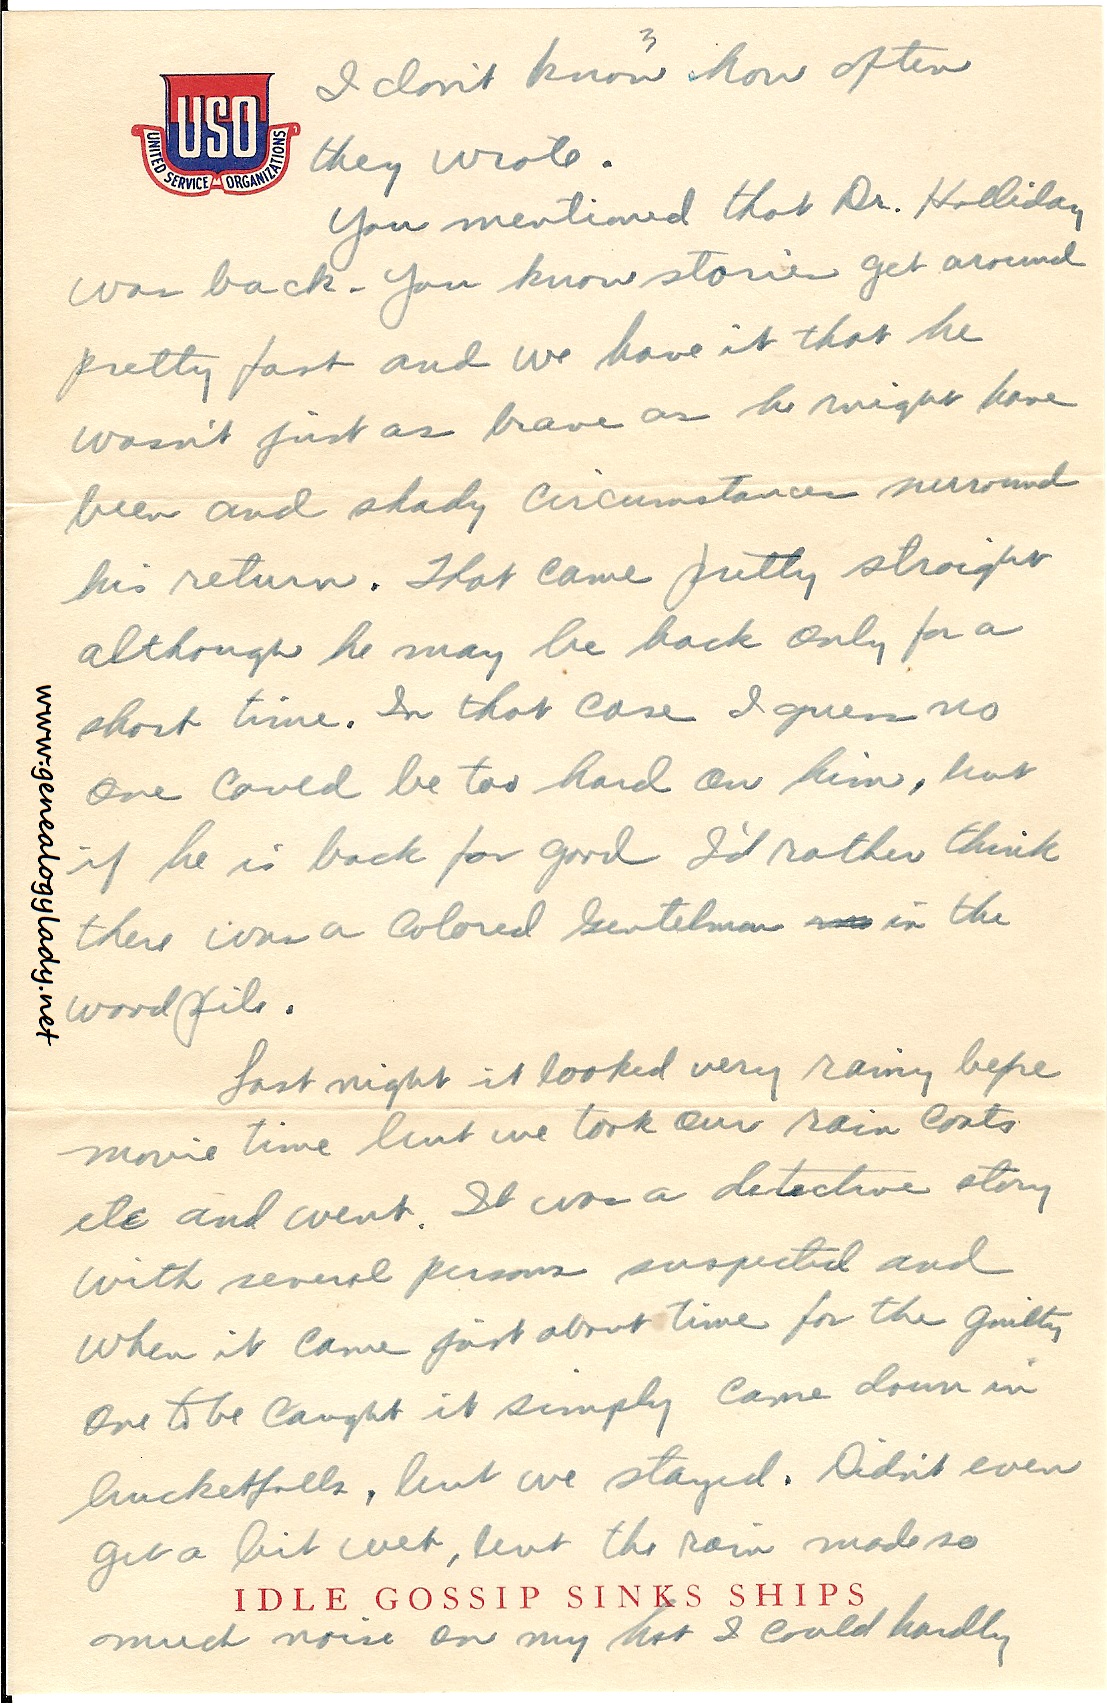 3
USO
UNITED SERVICE ORGANIZATIONS
I don't know how often
they wrote.
You mentioned that Dr. Holliday
was back. You know stories get around
pretty fast and we have it that he
wasn't just as brave as he might have
been and shady circumstances surround
his return. That came pretty straight
although he may be back only for a
short time. In that case I guess no
one could be too hard on him, but
if he is back for good I'd rather think
there was a colored gentelman in the
woodpile.
Last night it looked very rainy before
movie time but we took our rain coats
etc and went. It was a detective story
with several persons suspected and
when it came just about time for the guilty
one to be caught it simply came down in
bucketfulls, but we stayed. Didn't even
get a bit wet, but the rain made so
IDLE GOSSIP SINKS SHIPS
much noise on my hat I could hardly
www.genealogylady.net